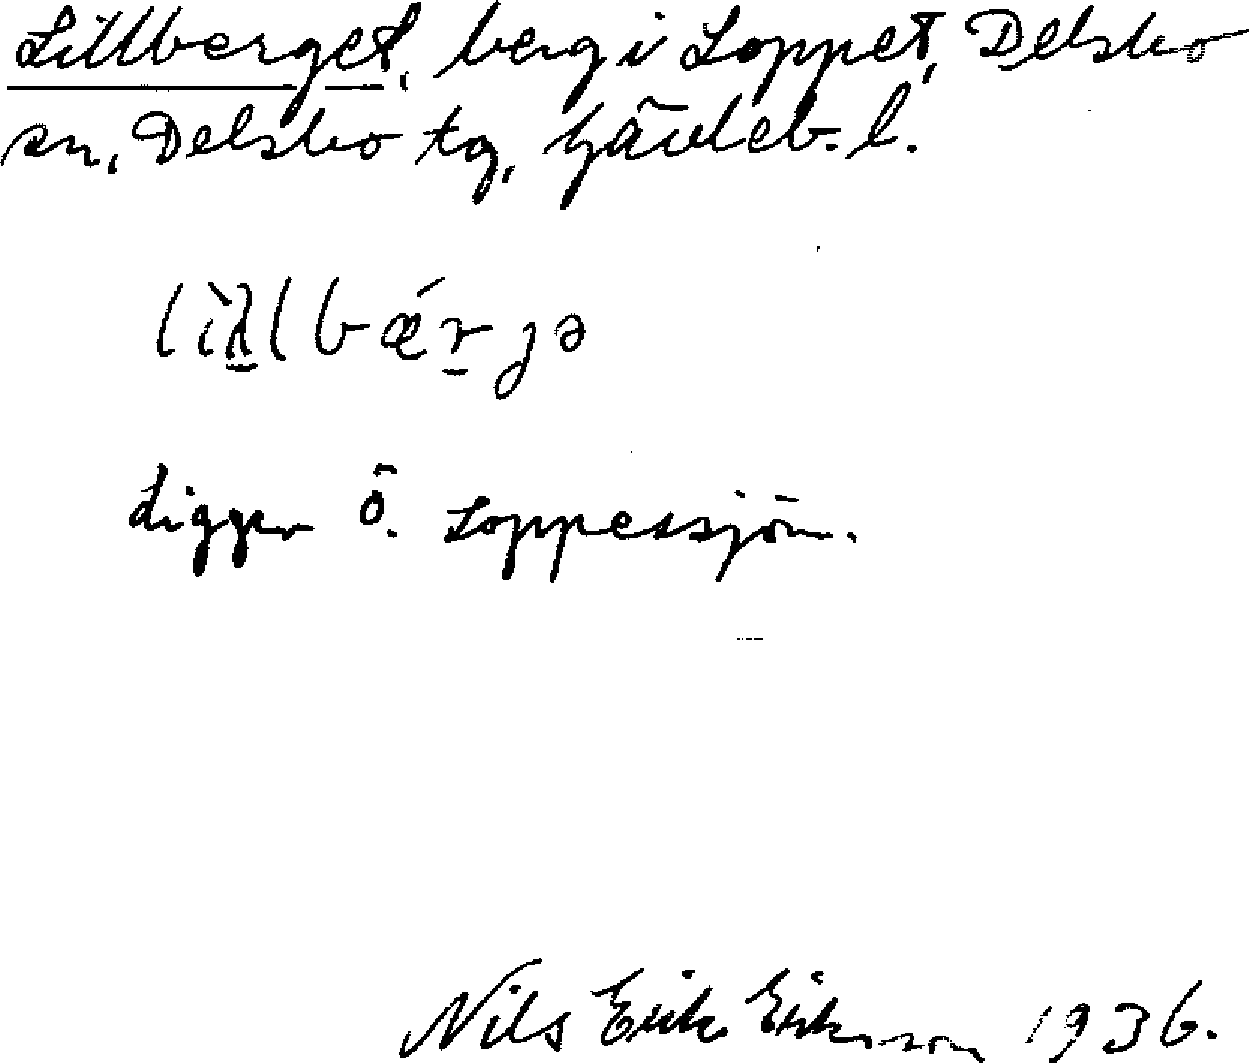 Lillberget, berg i Loppet, Delsbo
sn, Delsbo tg, Gävleb. l.
lìλ̳lbǽr̲ȷə
Ligger ö. Loppessjön.
Nils Erik Eriksson 1936.